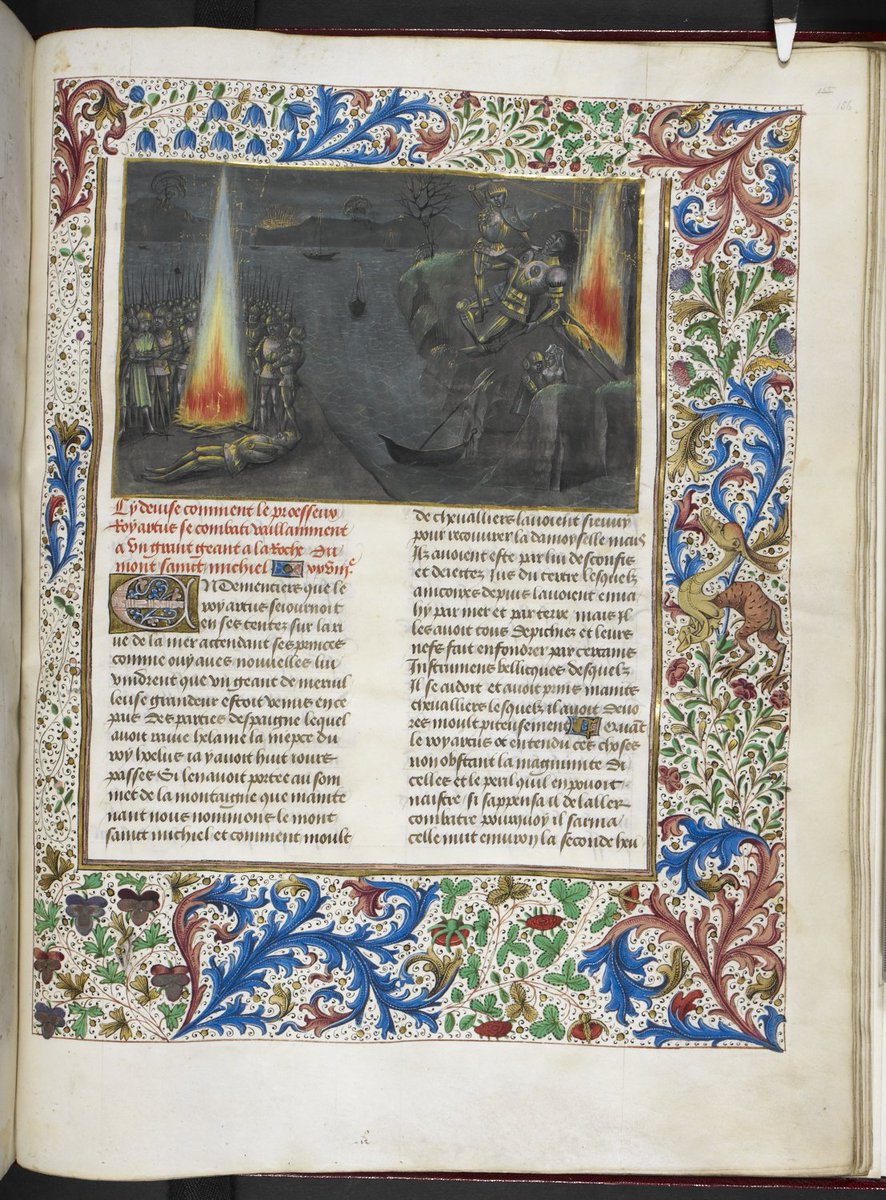 Cy deuise comment le preesseux
Roy artus se combati vaillamment
a vng grant geant a la Roche du
mont sainct michiel xxviiiᵉ
Endementiers que le
roy artus seiournoit
en ses tentez sur la ri
ue de la mer attendant ses princes
comme ouy aues nouuelles lui
vindrent que vng geant de merueil
leuse grandeur estoit venus en ce
pais des parties despaigne lequel
auoit rauie helaine la niepce du
roy hoelus ia y auoit huit iours
passes Si lenauoit portee au som
met de la montaigne que mainte
nant nous nommons le mont
sainct michiel et comment moult
de cheualliers lauoient sieuuy
pour recouurer la damoyselle mais
Ilz auoient este par lui desconfis
et deiettez jus du tertre lesquelz
ancoires depuis lauoient enua
hy par mer et par terre mais il
les auoit tous depichez et leurs
nefz fait enfondrer par certains
Instrumens bellicques desquelz
Il se aidoit et auoit prins mains
cheualliers lesquelz il auoit deuo
res moult piteusement Quant
le roy artus ot entendu ces choses
non obstant la magnitute di
celles et le peril quil en pouoit
naistre si sappensa il de laller
combatre pourquoy il sarma
celle nuit enuiron la seconde heu
106